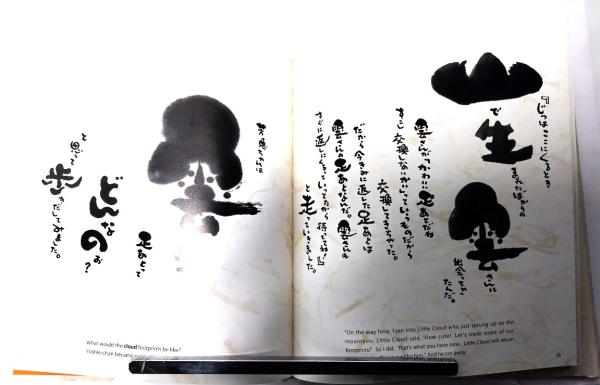 『じつはここにくるとき
山で生まれたばかりの
雲さんに
出会っちゃったんだ。
雲さんが「かわいい足あとだね
すこし交換しないかい」っていうものだから
交換してきちゃった。
だから今きみに返した足あとは
雲さんの足あとなんだ。雲さんも
すぐに返しにくるっていってたから待っててね!』
と走っていきました。
"On the way here, I ran into Little Cloud who just sprung up on the
mountains. Little Cloud said, 'How cute! Let's trade some of our
footprints?' So I did. That's what you have now. Little Cloud will return
for him." And he ran away.
芳恵ちゃんは
雲
足あとって
どんなのぉ?
と思って
歩きだしてみました。
What would the cloud footprints be like?
Yoshie-chan became